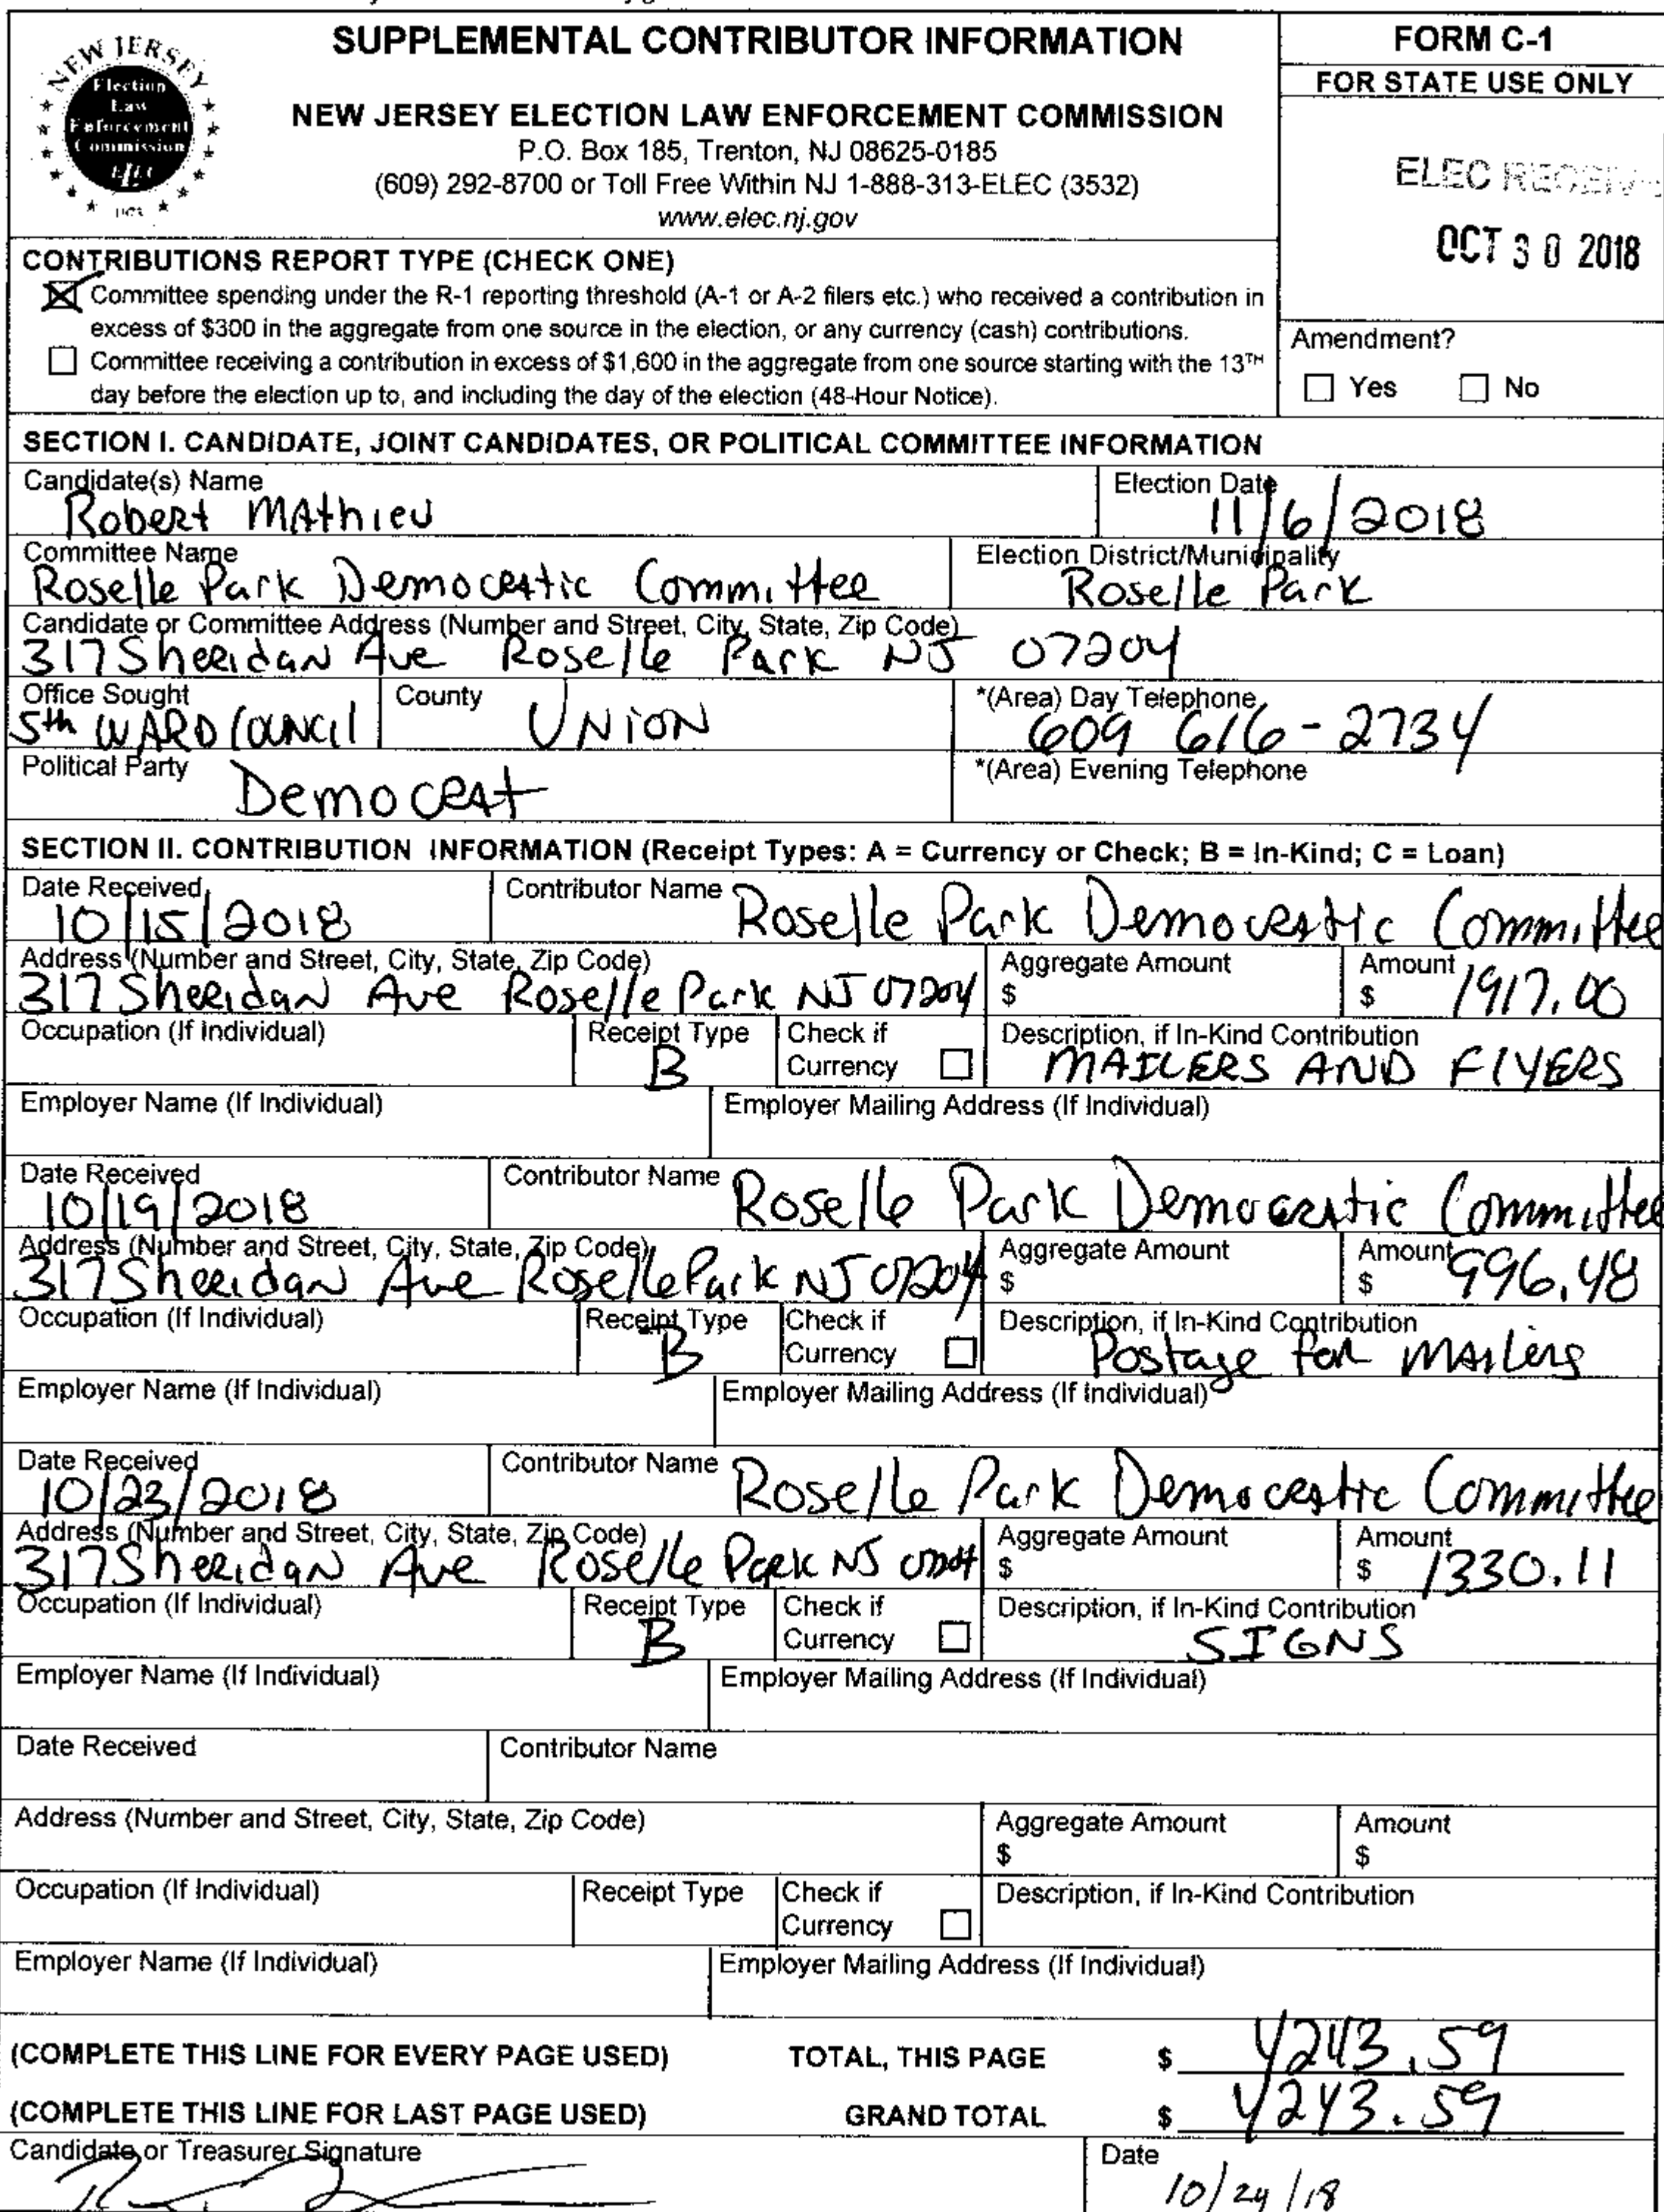 SUPPLEMENTAL CONTRIBUTOR INFORMATION
FORM C-1
FOR STATE USE ONLY
NEW JERSEY
Election
Law
Enforcement
Commission
ELEC
NEW JERSEY ELECTION LAW ENFORCEMENT COMMISSION
P.O. Box 185, Trenton, NJ 08625-0185
(609) 292-8700 or Toll Free Within NJ 1-888-313-ELEC (3532)
www.elec.nj.gov
ELEC RECEIV
OCT 30 2018
CONTRIBUTIONS REPORT TYPE (CHECK ONE)
Committee spending under the R-1 reporting threshold (A-1 or A-2 filers etc.) who received a contribution in
excess of $300 in the aggregate from one source in the election, or any currency (cash) contributions.
Committee receiving a contribution in excess of $1,600 in the aggregate from one source starting with the 13TH
day before the election up to, and including the day of the election (48-Hour Notice).
Amendment?
Yes No
SECTION I. CANDIDATE, JOINT CANDIDATES, OR POLITICAL COMMITTEE INFORMATION
Candidate(s) Name Election Date
Robert Mathieu 11/6/2018
Committee Name Election District/Municipality
Roselle Park Democratic Committee Roselle Park
Candidate or Committee Address (Number and Street, City, State, Zip Code)
317 Sheridan Ave Roselle Park NJ 07204
Office Sought County *(Area) Day Telephone
5th WARD COUNCIL UNION 609 616-2734
Political Party *(Area) Evening Telephone
Democrat
SECTION II. CONTRIBUTION INFORMATION (Receipt Types: A = Currency or Check; B = In-Kind; C = Loan)
Date Received Contributor Name
10/15/2018 Roselle Park Democratic Committee
Address (Number and Street, City, State, Zip Code) Aggregate Amount Amount
317 Sheridan Ave Roselle Park NJ 07204 $ $ 1917.00
Occupation (If Individual) Receipt Type Check if Description, if In-Kind Contribution
B Currency MAILERS AND FLYERS
Employer Name (If Individual) Employer Mailing Address (If Individual)
Date Received Contributor Name
10/19/2018 Roselle Park Democratic Committee
Address (Number and Street, City, State, Zip Code) Aggregate Amount Amount
317 Sheridan Ave Roselle Park NJ 07204 $ $ 996.48
Occupation (If Individual) Receipt Type Check if Description, if In-Kind Contribution
B Currency Postage for Mailing
Employer Name (If Individual) Employer Mailing Address (If Individual)
Date Received Contributor Name
10/23/2018 Roselle Park Democratic Committee
Address (Number and Street, City, State, Zip Code) Aggregate Amount Amount
317 Sheridan Ave Roselle Park NJ 07204 $ $ 1330.11
Occupation (If Individual) Receipt Type Check if Description, if In-Kind Contribution
B Currency SIGNS
Employer Name (If Individual) Employer Mailing Address (If Individual)
Date Received Contributor Name
Address (Number and Street, City, State, Zip Code) Aggregate Amount Amount
$ $
Occupation (If Individual) Receipt Type Check if Description, if In-Kind Contribution
Currency
Employer Name (If Individual) Employer Mailing Address (If Individual)
(COMPLETE THIS LINE FOR EVERY PAGE USED) TOTAL, THIS PAGE $ 4243.59
(COMPLETE THIS LINE FOR LAST PAGE USED) GRAND TOTAL $ 4243.59
Candidate or Treasurer Signature Date
10/24/18